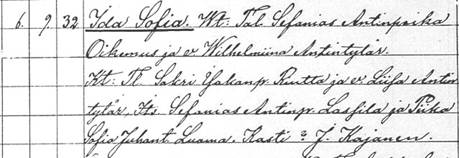 6. 9. 32 Ida Sofia. Wt: Tal. Sefanias Antinpoika
Oikemus ja v Wilhelmiina Antintytär.
Kt: Tl. Sakri Isakanp. Runtta ja v Liisa Antin
tytär, Its. Sefanias Antinp. Lassila ja Piika
Sofia Juhant. Luoma. Kasti: J. Kajanen.